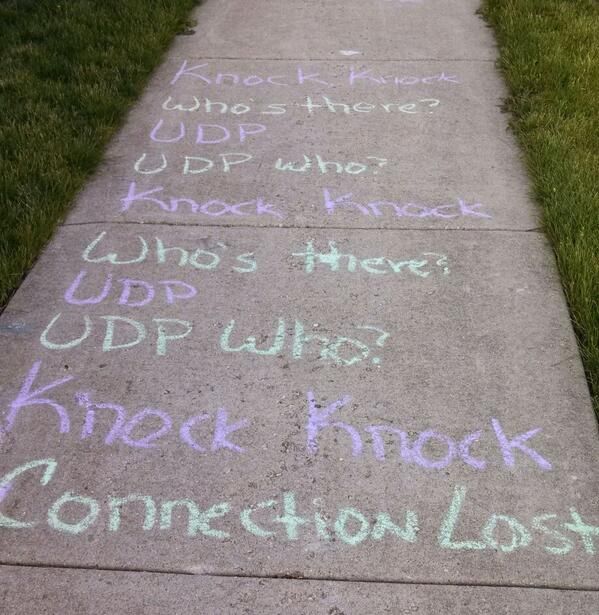 Knock Knock
Who's there?
UDP
UDP who?
Knock Knock
Who's there?
UDP
UDP Who?
Knock Knock
Connection Lost